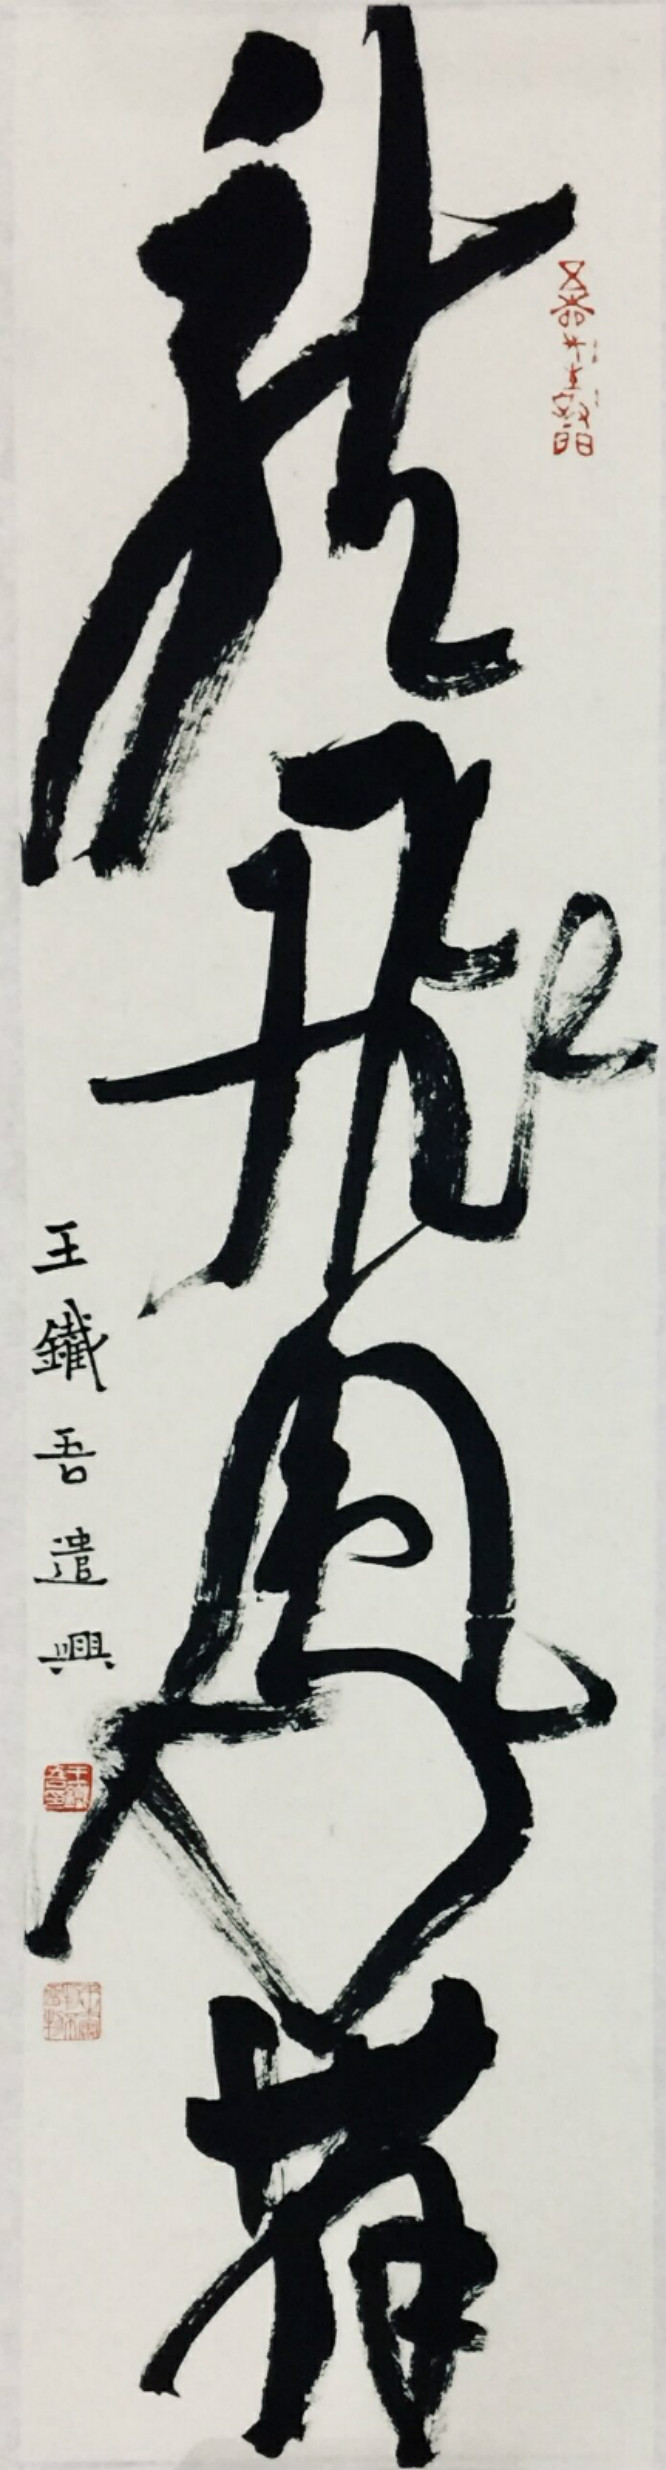 龍飛鳳舞
王鐵吾遣興